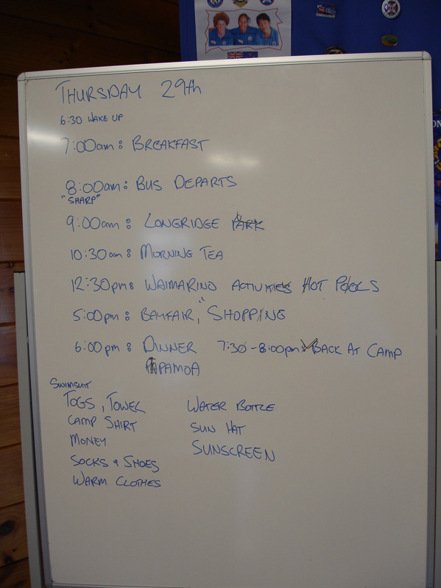 THURSDAY 29th
6:30 WAKE UP
7:00am: BREAKFAST
8:00am: BUS DEPARTS
"SHARP"
9:00am: LONGRIDGE PARK
10:30am: MORNING TEA
12:30pm: WAIMARINO ACTIVITIES HOT POOLS
5:00pm: BAYFAIR, SHOPPING
6:00pm: DINNER 7:30-8:00pm BACK AT CAMP
PAPAMOA
SWIMSUIT
TOGS, TOWEL WATER BOTTLE
CAMP SHIRT SUN HAT
MONEY SUNSCREEN
SOCKS & SHOES
WARM CLOTHES